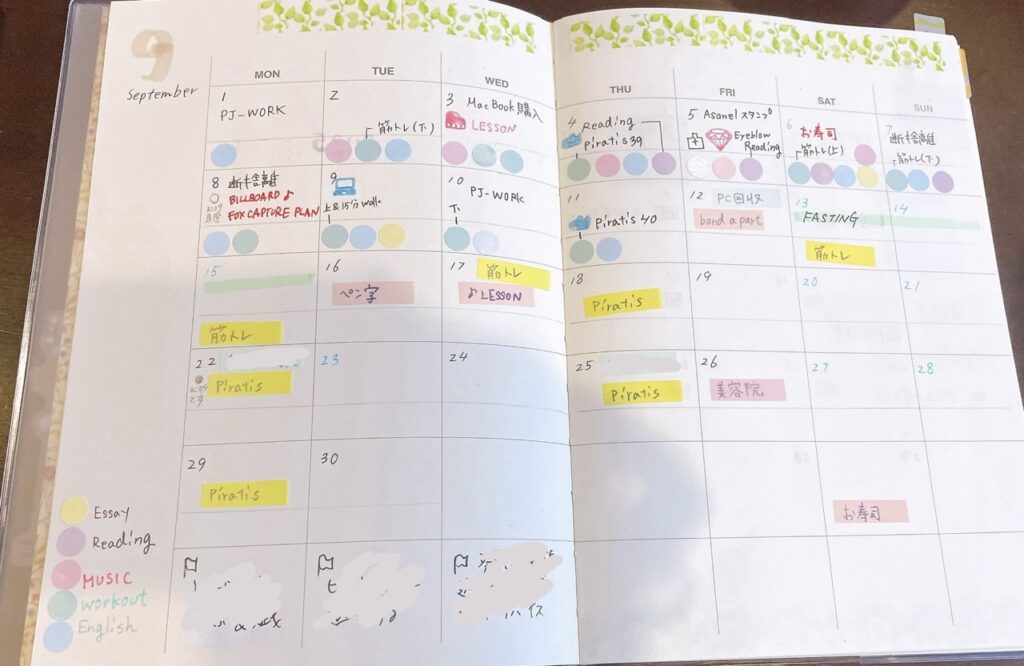 9
September
MON
TUE
WED
THU
FRI
SAT
SUN
1
PJ-WORK
2
筋トレ(下)
3 MacBook購入
LESSON
4
Reading
piratis39
5 Asanel スタンプ
Eyeblow
Reading
6 お寿司
筋トレ(上)
7 断捨離
筋トレ(下)
8 断捨離
BILLBOARD♪
FOX CAPTURE PLAN
9
上&15分walk
10
PJ-WORK
下
11
Piratis 40
12 PC回収
band a part
13
FASTING
筋トレ
14
15
筋トレ
16
ペン字
17 筋トレ
♪LESSON
18
Piratis
19
20
21
22
Piratis
23
24
25
Piratis
26
美容院
27
28
29
Piratis
30
お寿司
Essay
Reading
MUSIC
workout
English